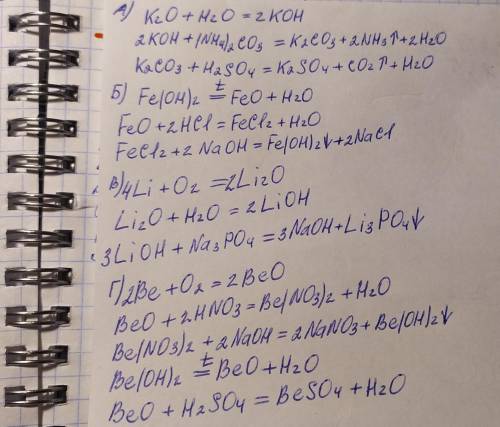 А) K2O + H2O = 2KOH
2KOH + (NH4)2CO3 = K2CO3 + 2NH3↑ + 2H2O
K2CO3 + H2SO4 = K2SO4 + CO2↑ + H2O
Б) Fe(OH)2 =t FeO + H2O
FeO + 2HCl = FeCl2 + H2O
FeCl2 + 2NaOH = Fe(OH)2↓ + 2NaCl
В) 4Li + O2 = 2Li2O
Li2O + H2O = 2LiOH
3LiOH + Na3PO4 = 3NaOH + Li3PO4↓
Г) 2Be + O2 = 2BeO
BeO + 2HNO3 = Be(NO3)2 + H2O
Be(NO3)2 + 2NaOH = 2NaNO3 + Be(OH)2↓
Be(OH)2 =t BeO + H2O
BeO + H2SO4 = BeSO4 + H2O